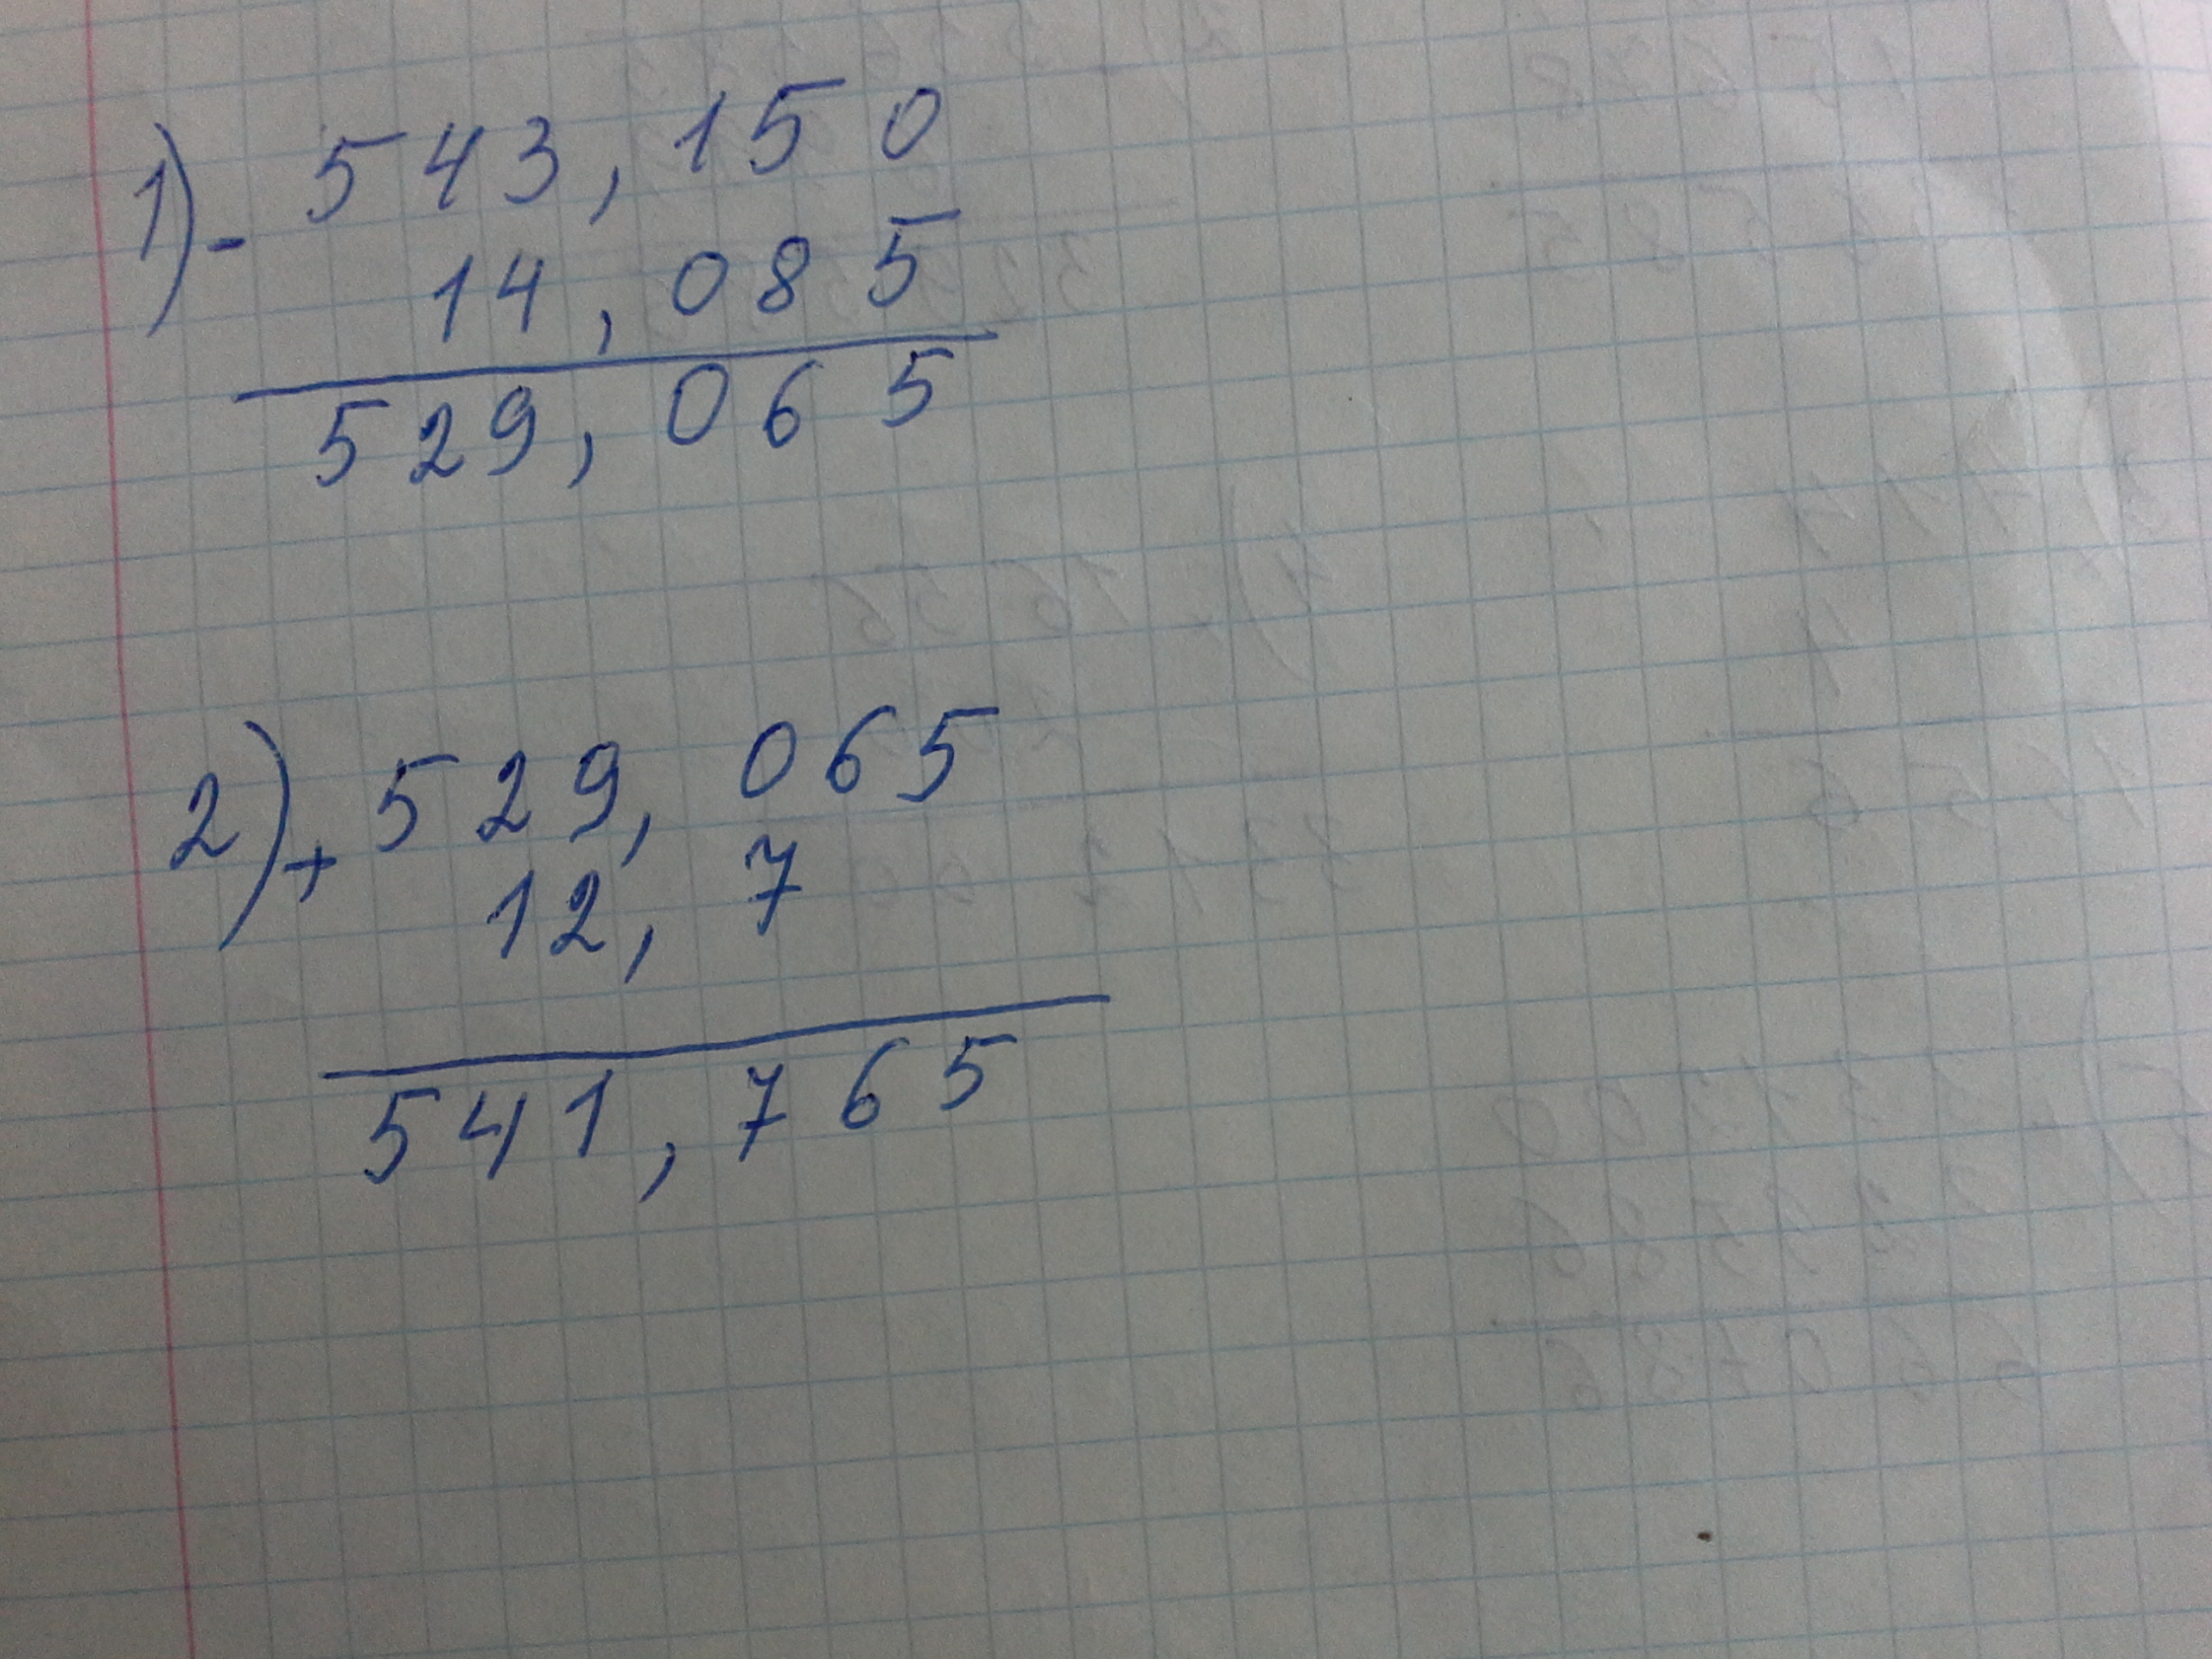 1) - 543,150
14,085
529,065
2) + 529,065
12,7
541,765